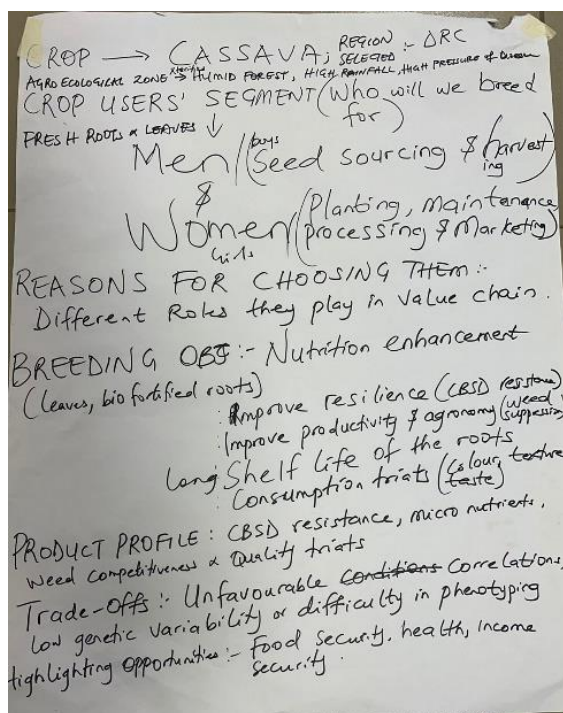 CROP → CASSAVA; REGION SELECTED :- DRC
AGRO ECOLOGICAL ZONE → HUMID FOREST, HIGH RAINFALL, HIGH PRESSURE of
CROP USERS' SEGMENT (Who will we breed for)
FRESH ROOTS & LEAVES ↓
Men/boys (Seed sourcing & harvesting)
&
Women/Girls (Planting, Maintenance, processing & Marketing)
REASONS FOR CHOOSING THEM :-
Different Roles they play in Value chain.
BREEDING OBJ :- Nutrition enhancement
(leaves, bio fortified roots)
: Improve resilience (CBSD resistance)
: Improve productivity & agronomy (weed suppression)
Long Shelf life of the roots
: Consumption triats (Colour, texture taste)
PRODUCT PROFILE : CBSD resistance, micro nutrients,
weed competitiveness & Quality triats
Trade-Offs :- Unfavourable Conditions Correlations,
low genetic variability or difficulty in phenotyping
Highlighting opportunities :- Food security, health, Income
security.